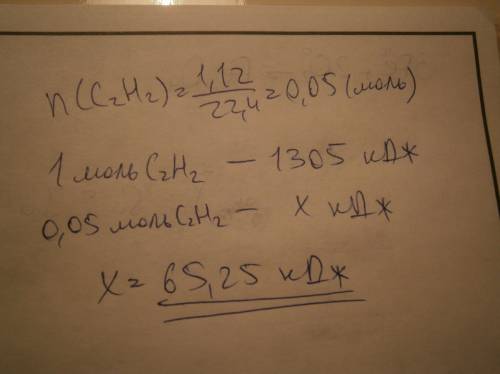 n(C₂H₂)=1,12/22,4=0,05(моль)
1 моль C₂H₂ — 1305 кДж
0,05 моль C₂H₂ — x кДж
x= 65,25 кДж